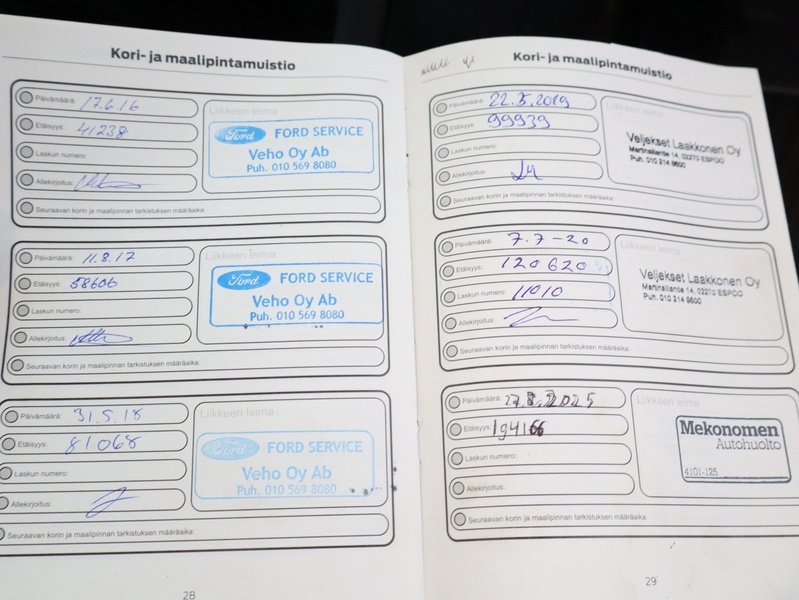 Kori- ja maalipintamuistio
Päivämäärä: 17.6.16
Etäisyys: 41238
Laskun numero:
Allekirjoitus:
Seuraavan korin ja maalipinnan tarkistuksen määräaika:
Liikkeen leima
Ford FORD SERVICE
Veho Oy Ab
Puh. 010 569 8080
Päivämäärä: 11.8.17
Etäisyys: 58606
Laskun numero:
Allekirjoitus:
Seuraavan korin ja maalipinnan tarkistuksen määräaika:
Liikkeen leima
Ford FORD SERVICE
Veho Oy Ab
Puh. 010 569 8080
Päivämäärä: 31.5.18
Etäisyys: 81068
Laskun numero:
Allekirjoitus:
Seuraavan korin ja maalipinnan tarkistuksen määräaika:
Liikkeen leima
Ford FORD SERVICE
Veho Oy Ab
Puh. 010 569 8080
28
Kori- ja maalipintamuistio
Päivämäärä: 22.5.2019
Etäisyys: 99939
Laskun numero:
Allekirjoitus:
Seuraavan korin ja maalipinnan tarkistuksen määräaika:
Liikkeen leima
Veljekset Laakkonen Oy
Martinsillantie 14, 02270 ESPOO
Puh. 010 214 8600
Päivämäärä: 7.7-20
Etäisyys: 120 620
Laskun numero: 11010
Allekirjoitus:
Seuraavan korin ja maalipinnan tarkistuksen määräaika:
Liikkeen leima
Veljekset Laakkonen Oy
Martinsillantie 14, 02270 ESPOO
Puh. 010 214 8600
Päivämäärä:
Etäisyys: 194166
Laskun numero:
Allekirjoitus:
Seuraavan korin ja maalipinnan tarkistuksen määräaika:
Liikkeen leima
Mekonomen
Autohuolto
4101-125
29